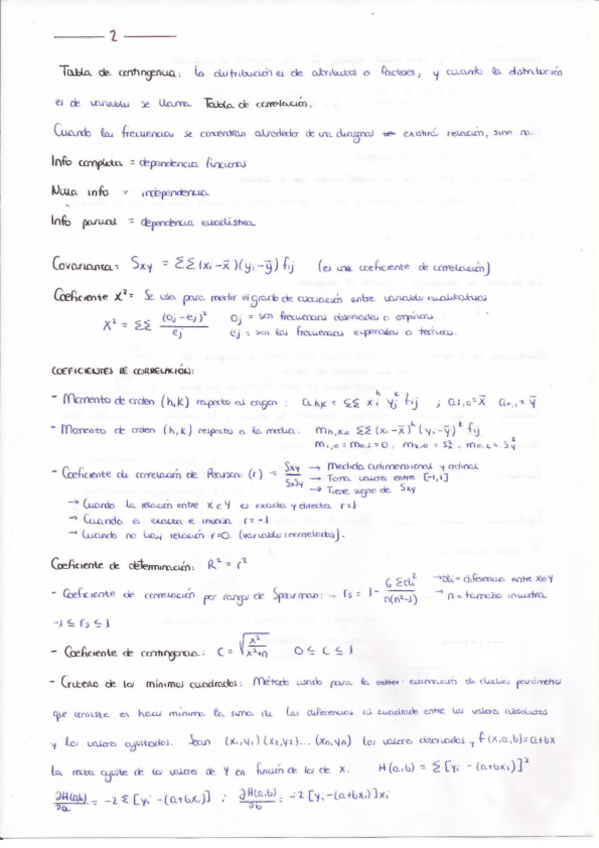 2
Tabla de contingencia: la distribución es de atributos o factores, y cuando la distribución
es de variables se llama Tabla de correlación.
Cuando las frecuencias se concentran alrededor de una diagonal existirá relación, sino no.
Info completa = dependencia funcional
Nula info = independencia
Info parcial = dependencia estadística
Covarianza: Sxy = ΣΣ (xi - x̄)(yi - ȳ) fij (es un coeficiente de correlación)
Coeficiente X²: Se usa para medir el grado de asociación entre variables cualitativas
X² = ΣΣ (oj - ej)² / ej oj = son frecuencias observadas o empíricas
ej = son las frecuencias esperadas o teóricas.
COEFICIENTES DE CORRELACIÓN:
- Momento de orden (h,k) respecto al origen: ah,k = ΣΣ xi^h yj^k fij ; a1,0 = x̄ a0,1 = ȳ
- Momento de orden (h,k) respecto a la media: mh,k = ΣΣ (xi - x̄)^h (yi - ȳ)^k fij
m1,0 = m0,1 = 0, m2,0 = S²x, m0,2 = S²y
- Coeficiente de correlación de Pearson: (r) = Sxy / SxSy → Medida adimensional y ordinal
→ Toma valores entre [-1,1]
→ Tiene signo de Sxy
→ Cuando la relación entre X e Y es exacta y directa r=1
→ Cuando es exacta e inversa r=-1
→ Cuando no hay relación r=0 (variables incorreladas).
Coeficiente de determinación: R² = r²
- Coeficiente de correlación por rangos de Spearman: - rs = 1 - 6 Σdi² / n(n²-1) → di = diferencia entre x e y
→ n = tamaño muestra
-1 ≤ rs ≤ 1
- Coeficiente de contingencia: C = √(x² / x²+n) 0 ≤ C ≤ 1
- Criterio de los mínimos cuadrados: Método usado para la estimación de dichos parámetros
que consiste en hacer mínima la suma de las diferencias al cuadrado entre los valores absolutos
y los valores ajustados. Sean (x1,y1) (x2,y2)... (xn,yn) los valores observados y f(x,a,b)=a+bx
la recta ajuste de los valores de Y en función de los de x. H(a,b) = Σ [yi - (a+bxi)]²
∂H(a,b)/∂a = -2 Σ [yi - (a+bxi)] ; ∂H(a,b)/∂b = -2 [yi - (a+bxi)]xi